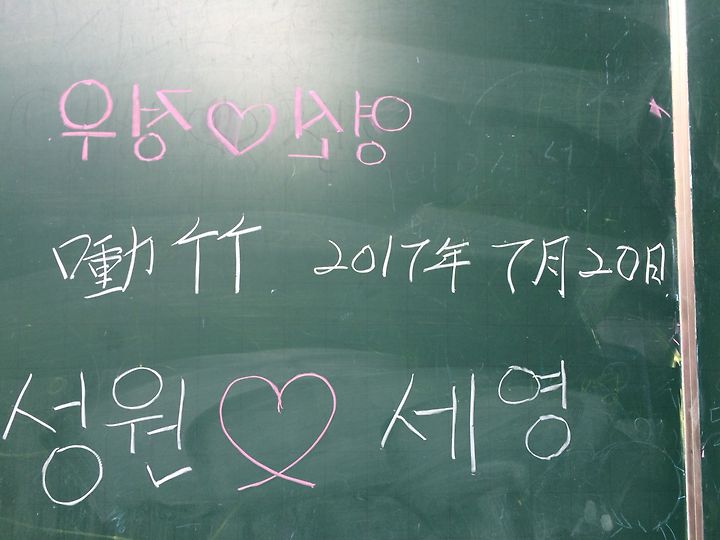 영신♡정우
竹 2017年 7月 20日
성원♡세영